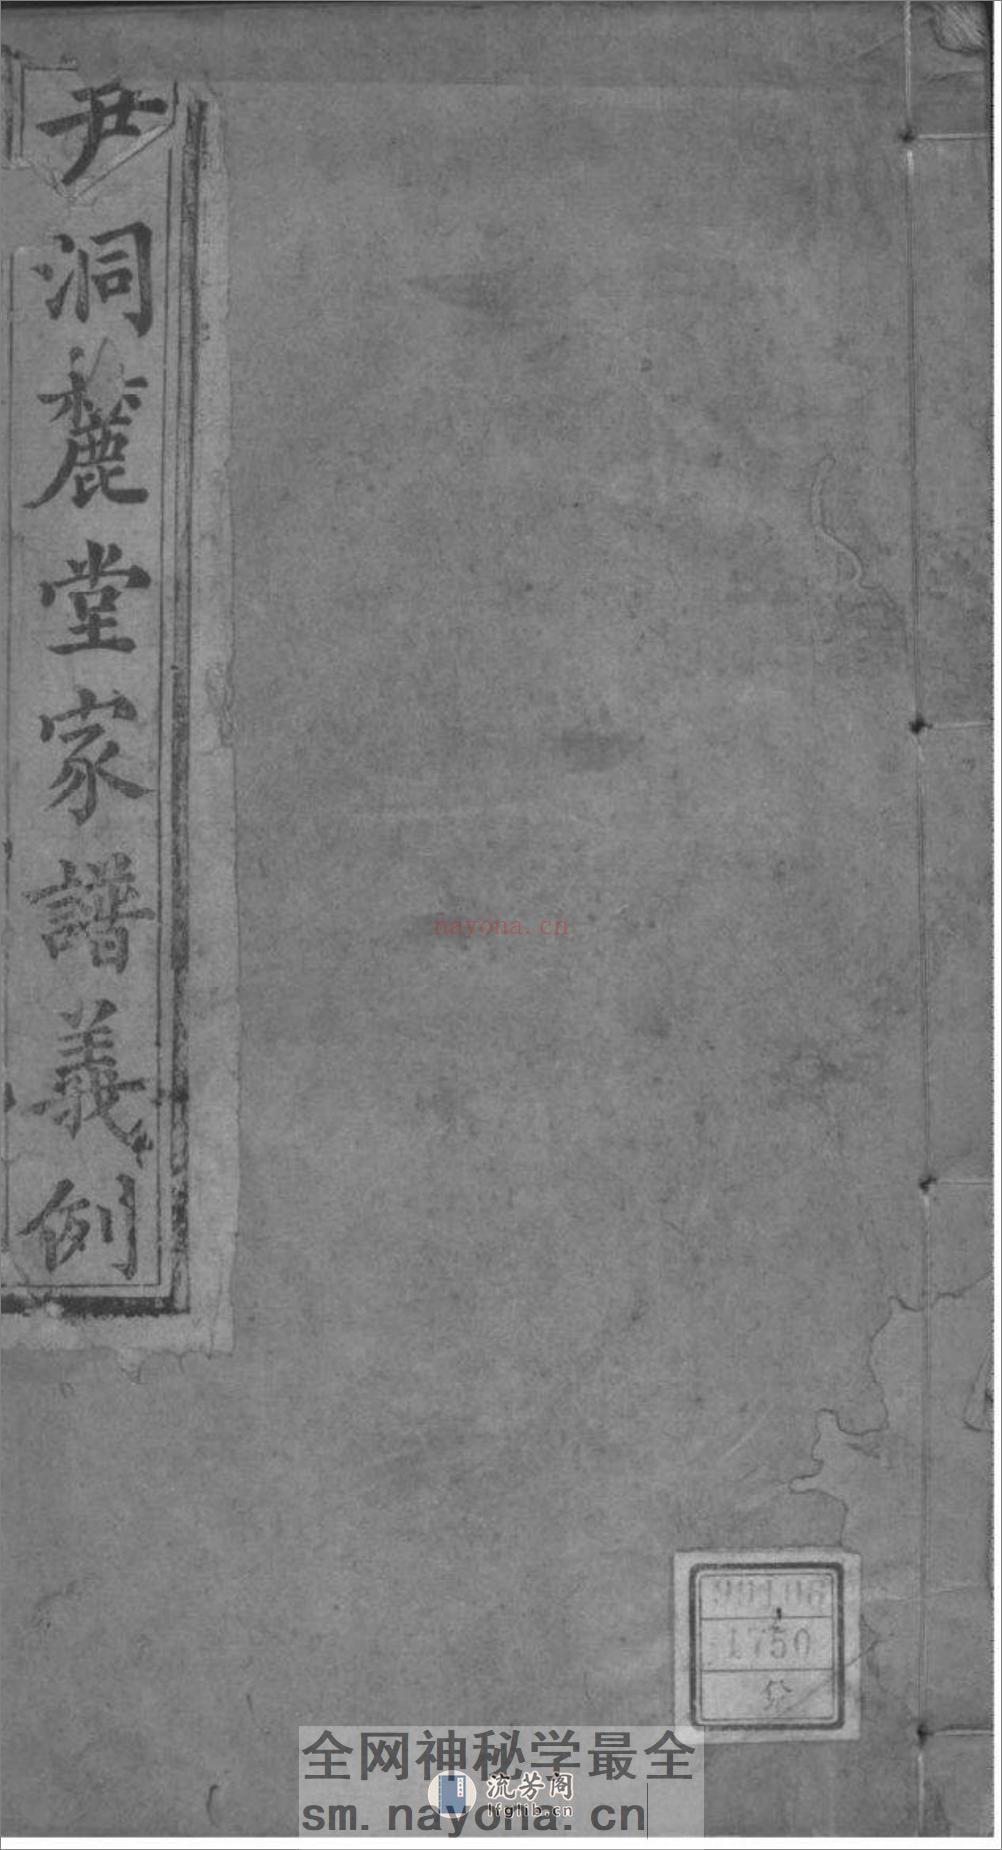 尹洞麓堂家譜義例
nayona.cn
99108
1750
全网神秘学最全
流芳阁
lfglib.cn
sm.nayona.cn